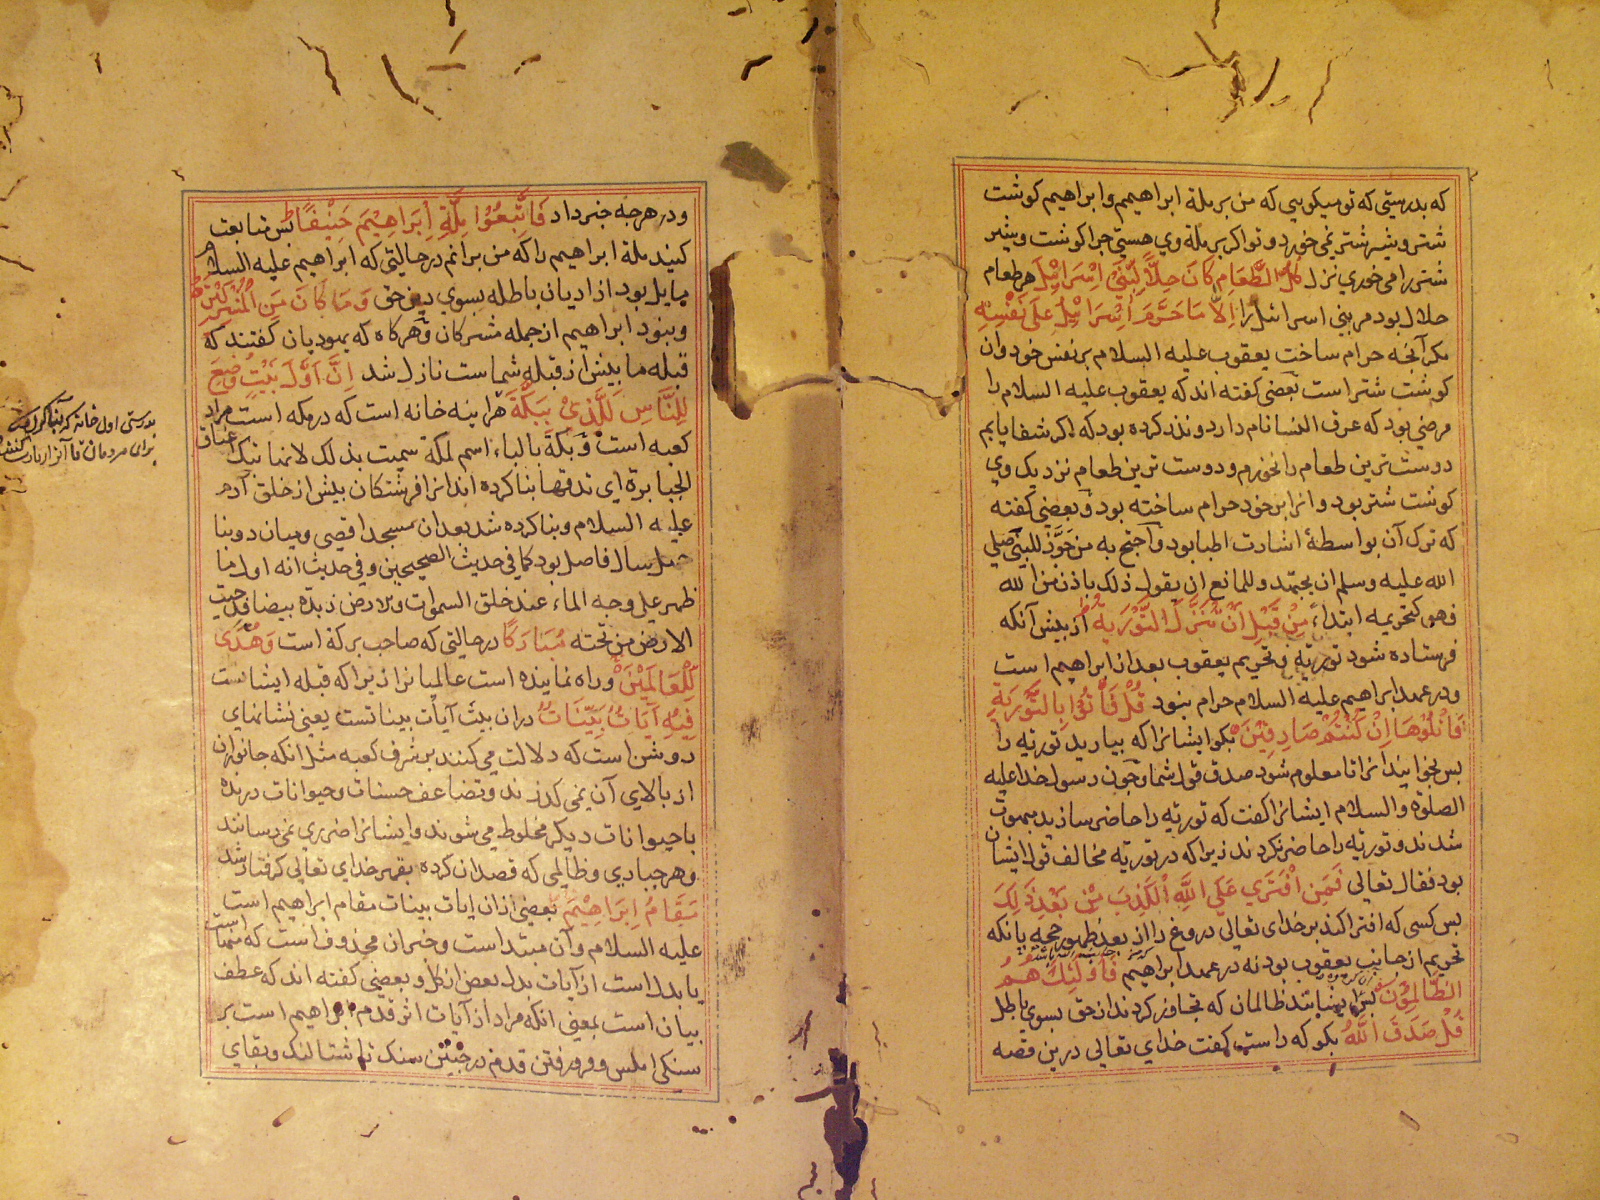 که بدرستی که تو میکویی که من بر ملة ابراهیمم و ابراهیم کوشت
شتر و شیر شتر نمی خورد و تو اکر بر ملة وی هستی چرا کوشت و شیر
شتر را می خوری نزل کُلُّ الطَّعَامِ کَانَ حِلًّا لِّبَنِیْ اِسْرَائِیْلَ هر طعام
حلال بود مر بنی اسرائیل را اِلَّا مَا حَرَّمَ اِسْرَائِیْلُ عَلٰی نَفْسِهِ
مکر آنچه حرام ساخت یعقوب علیه السلام بر نفس خود و ان
کوشت شتر است بعضی کفته اند که یعقوب علیه السلام را
مرضی بود که عرق النسا نام دارد و نذر کرده بود که اکر شفا یابم
دوست ترین طعام را نخورم و دوست ترین طعام نزدیک وی
کوشت شتر بود و انرا بر خود حرام ساخته بود و بعضی کفته
که ترک آن بواسطۀ اشارت اطبا بود و احتج به من جوّز للنبی صلی
الله علیه وسلم ان یجتهد وللمانع ان یقول ذلک باذن من الله
فهو کتحریمه ابتداءً مِنْ قَبْلِ اَنْ تُنَزَّلَ التَّوْرٰیةُ از پیش آنکه
فرستاده شود توریة و تحریم یعقوب بعد از ابراهیم است
و در عهد ابراهیم علیه السلام حرام نبود قُلْ فَأْتُوْا بِالتَّوْرٰیةِ
فَاتْلُوْهَا اِنْ کُنْتُمْ صَادِقِیْنَ بکو ایشانرا که بیارید توریة را
پس بخوانید انرا تا معلوم شود صدق قول شما و چون رسول خدا علیه
الصلوة والسلام ایشانرا کفت که توریة را حاضر سازید مبهوت
شدند و توریة را حاضر نکردند زیرا که در توریة مخالف قول ایشان
بود فقال تعالی فَمَنِ افْتَرٰی عَلَی اللَّهِ الْکَذِبَ مِنْ بَعْدِ ذٰلِکَ
پس کسی که افترا کند بر خدای تعالی دروغ را از بعد ظهور حجه بانکه
تحریم از جانب یعقوب بود نه در عهد ابراهیم فَاُولٰئِکَ هُمُ
الظَّالِمُوْنَ پس ایشانند ظالمان که تجاوز کردند از حق بسوی باطل
قُلْ صَدَقَ اللَّهُ بکو که راست کفت خدای تعالی درین قصه
و در هر چه خبر داد فَاتَّبِعُوْا مِلَّةَ اِبْرَاهِیْمَ حَنِیْفًا پس متابعت
کنید ملة ابراهیم را که من برانم در حالتی که ابراهیم علیه السلام
مایل بود از ادیان باطله بسوی دین حق وَمَا کَانَ مِنَ الْمُشْرِکِیْنَ
و نبود ابراهیم از جمله مشرکان و هرکاه که یهودیان کفتند که
قبله ما پیش از قبله شماست نازل شد اِنَّ اَوَّلَ بَیْتٍ وُضِعَ
لِلنَّاسِ لَلَّذِیْ بِبَکَّةَ هراینه خانه است که در مکه است مراد
کعبه است و بکة بالباء اسم لمکة سمیت بذلک لانها تبک اعناق
الجبابرة ای تدقها بنا کرده اند انرا فرشتکان پیش از خلق آدم
علیه السلام و بنا کرده شد بعد ان مسجد اقصی و میان دو بنا
چهل سال فاصل بود کما فی حدیث الصحیحین و فی حدیث انه اول ما
ظهر علی وجه الماء عند خلق السموات والارض زبدة بیضا فدحیت
الارض من تحته مُبَارَکًا در حالتی که صاحب برکة است وَهُدًی
لِلْعَالَمِیْنَ و راه نماینده است عالمیانرا زیرا که قبله ایشانست
فِیْهِ آیَاتٌ بَیِّنَاتٌ دران بیت آیات بیناتست یعنی نشانهای
روشن است که دلالت می کنند بر شرف کعبه مثل انکه جانوران
از بالای آن نمی کذرند و تضاعف حسنات و حیوانات درنده
با حیوانات دیکر مخلوط می شوند و ایشانرا ضرری نمی رسانند
و هر جباری و ظالمی که قصد ان کرده بقهر خدای تعالی کرفتار شد
مَقَامُ اِبْرَاهِیْمَ بعضی از ان ایات بینات مقام ابراهیم است
علیه السلام و آن مبتداست و خبر ان محذوف است که منهاست
یا بدل است از آیات بدل بعض از کل و بعضی کفته اند که عطف
بیان است بمعنی انکه مراد از آیات اثر قدم ابراهیم است بر
سنکی املس و فرو رفتن قدم در چنین سنک تا شتالنک و بقای
بدرستی اول خانه که بنا کرده شد
برای مردمان تا آنرا زیارت کنند